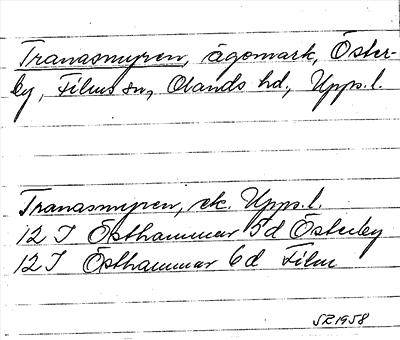 Tranasmyren, ägomark, Öster-
by, Films sn, Olands hd, Upps. l.
Tranasmyren, ek. Upps. l.
12 I Östhammar 5d Österby
12 I Östhammar 6d Film
SZ 1958